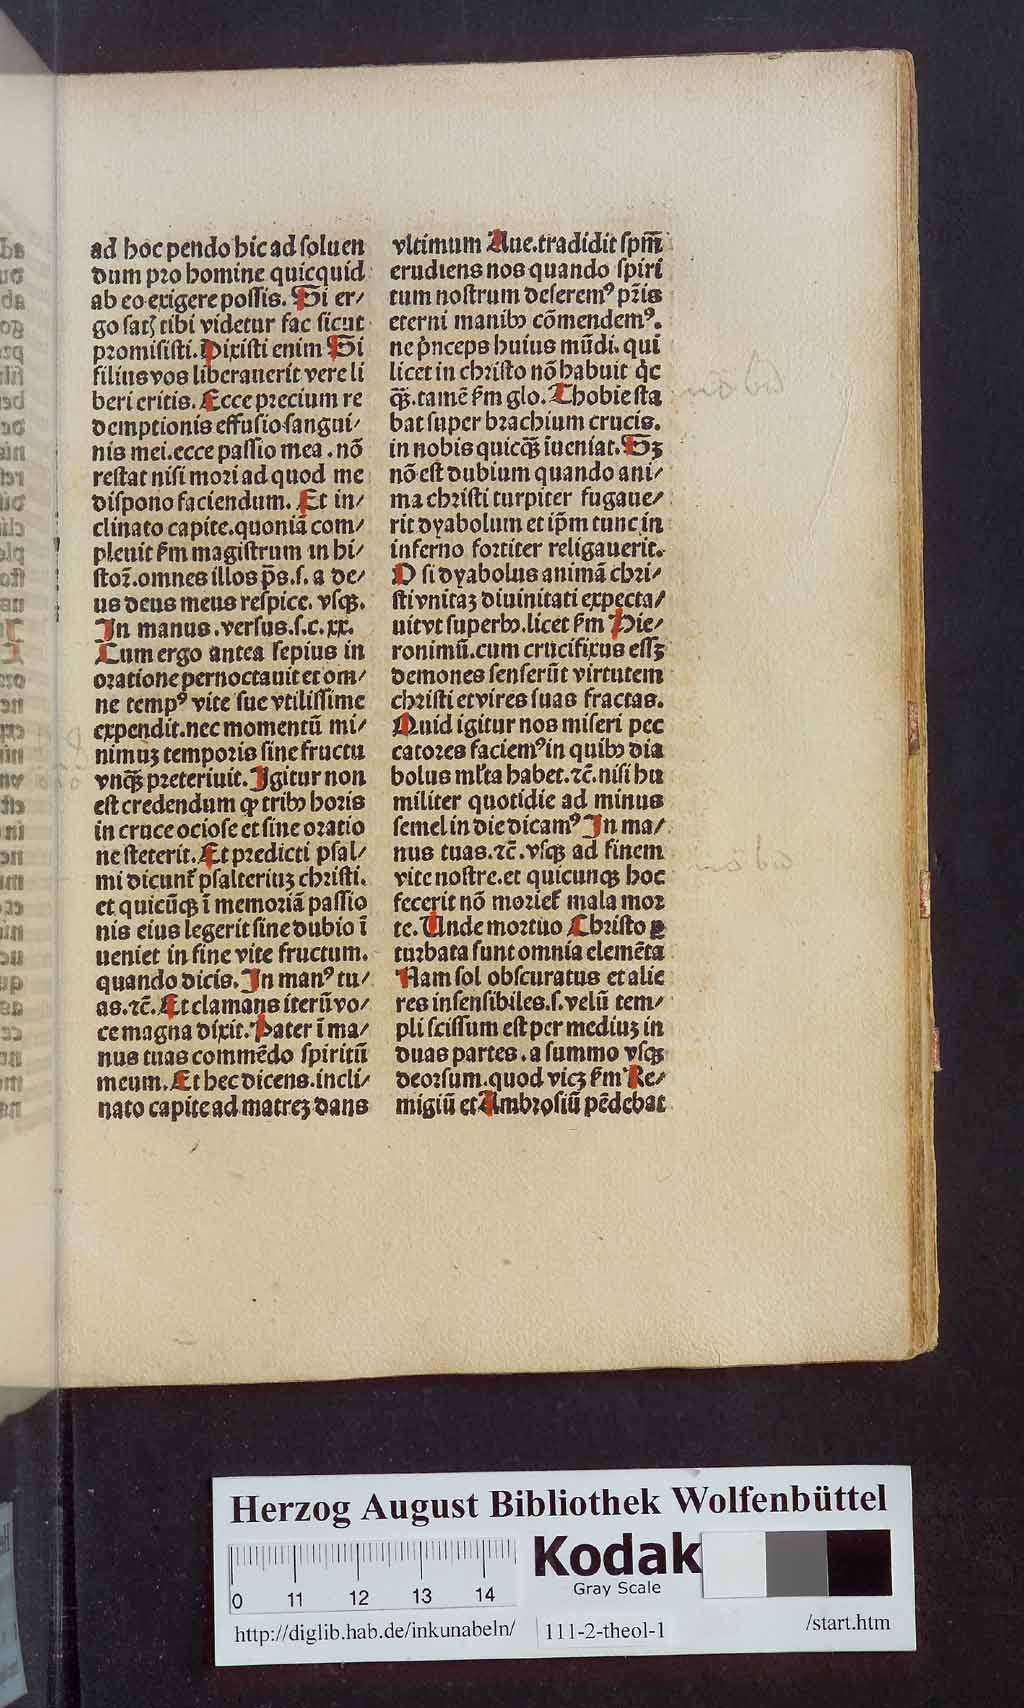 ad hoc pendo hic ad soluen
dum pro homine quicquid
ab eo exigere possis. Si er/
go satꝫ tibi videtur fac sicut
promisisti. Dixisti enim Si
filius vos liberauerit vere li
beri eritis. Ecce precium re
demptionis effusio sangui/
nis mei. ecce passio mea . nō
restat nisi mori ad quod me
dispono faciendum. Et in/
clinato capite. quoniā com/
pleuit ẜm magistrum in hi/
stoꝝ. omnes illos p̄s. s. a de/
us deus meus respice. vsqꝫ.
In manus. versus. s. c. xx.
Cum ergo antea sepius in
oratione pernoctauit et om/
ne tempꝰ vite sue vtilissime
expendit. nec momentū mi/
nimuꝫ temporis sine fructu
vnqꝫ̄ preteriuit. Igitur non
est credendum ꝙ tribꝰ horis
in cruce ociose et sine oratio
ne steterit. Et predicti psal/
mi dicunt᷑ psalteriuꝫ christi.
et quicūqꝫ ī memoriā passio
nis eius legerit sine dubio ī
ueniet in fine vite fructum.
quando dicis. In manꝰ tu/
as. ⁊c̄. Et clamans iterū vo/
ce magna dixit. Pater ī ma/
nus tuas commēdo spiritū
meum. Et hec dicens. incli/
nato capite ad matreꝫ dans
vltimum Aue. tradidit spm̄
erudiens nos quando spiri
tum nostrum deseremꝰ pr̄is
eterni manibꝰ cōmendemꝰ.
ne pͥnceps huius mūdi. qui
licet in christo nō habuit qͥc
qꝫ̄. tamē ẜm glo. Thobie sta
bat super brachium crucis.
in nobis quicqꝫ̄ iueniat. Sꝫ
nō est dubium quando ani/
ma christi turpiter fugaue/
rit dyabolum et ip̄m tunc in
inferno fortiter religauerit.
O si dyabolus animā chri/
sti vnitaꝫ diuinitati expecta/
uit vt superbꝰ. licet ẜm Hie/
ronimū. cum crucifixus essꝫ
demones senserūt virtutem
christi et vires suas fractas.
Quid igitur nos miseri pec
catores faciemꝰ in quibꝰ dia
bolus ml̄ta habet. ⁊c̄. nisi hu
militer quotidie ad minus
semel in die dicamꝰ In ma/
nus tuas. ⁊c̄. vsqꝫ ad finem
vite nostre. et quicunqꝫ hoc
fecerit nō moriet᷑ mala mor
te. Unde mortuo Christo ꝑ
turbata sunt omnia elemēta
Nam sol obscuratus et alie
res insensibiles. s. velū tem/
pli scissum est per mediuꝫ in
duas partes . a summo vsqꝫ
deorsum. quod vicꝫ ẜm Re/
migiū et Ambrosiū pēdebat
Herzog August Bibliothek Wolfenbüttel
Kodak
Gray Scale
0 11 12 13 14
http://diglib.hab.de/inkunabeln/ 111-2-theol-1 /start.htm